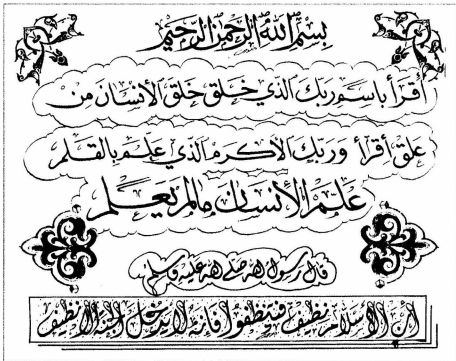 بسم الله الرحمن الرحيم
أقرأ باسم ربك الذي خلق خلق الأنسان من
علق أقرأ وربك الأكرم الذي علم بالقلم
علم الأنسان مالم يعلم
قال رسول الله صلى الله عليه وسلم
أن الأسلام نظيف فتنظفوا فانه لا يدخل الجنة الا نظيف